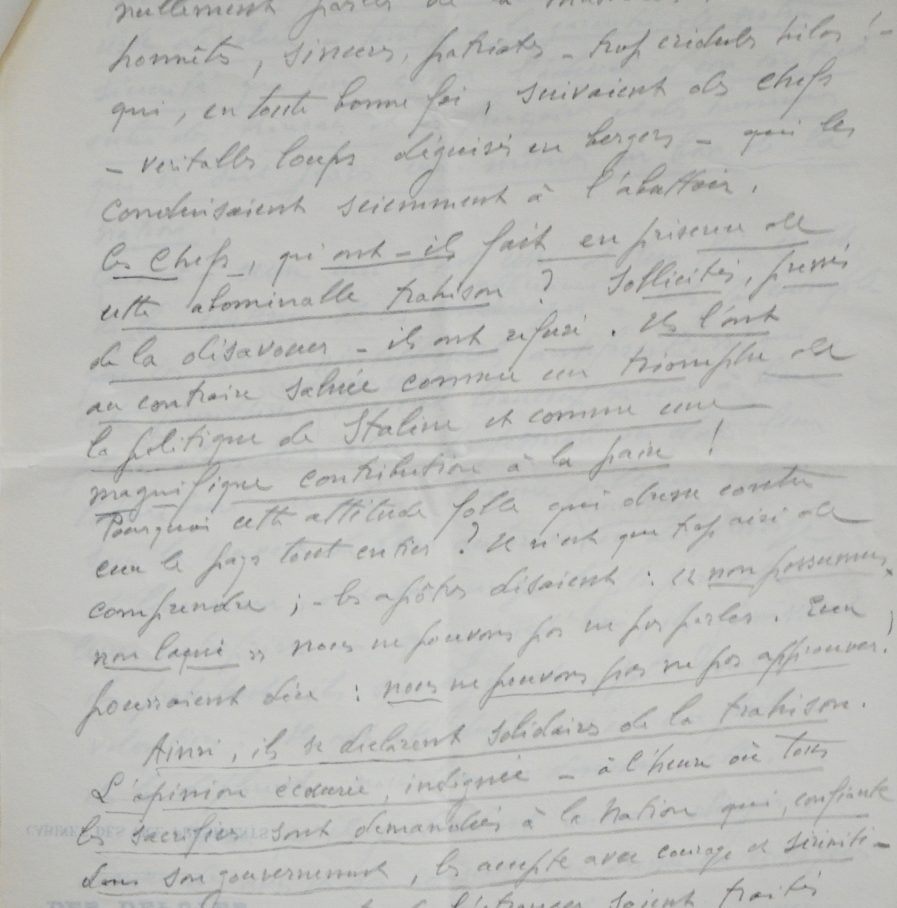 nullement parler de la
honnêtes, sincères, patriotes – trop crédules hélas ! –
qui, en toute bonne foi, suivaient des chefs
– véritables loups déguisés en bergers – qui les
conduisaient sciemment à l'abattoir.
Ces chefs, qu'ont-ils fait en présence de
cette abominable trahison ? Sollicités, pressés
de la désavouer – ils ont refusé. Ils l'ont
au contraire saluée comme un triomphe de
la politique de Staline et comme une
magnifique contribution à la paix !
Pourquoi cette attitude folle qui dresse contre
eux le pays tout entier ? Il n'est que trop aisé de
comprendre ; – les apôtres disaient : « non possumus
non loqui » nous ne pouvons pas ne pas parler. Eux
pourraient dire : nous ne pouvons pas ne pas approuver !
Ainsi, ils se déclarent solidaires de la trahison.
L'opinion écœurée, indignée – à l'heure où tous
les sacrifices sont demandés à la Nation qui, confiante
dans son gouvernement, les accepte avec courage et sérénité –
l'étranger soient traités